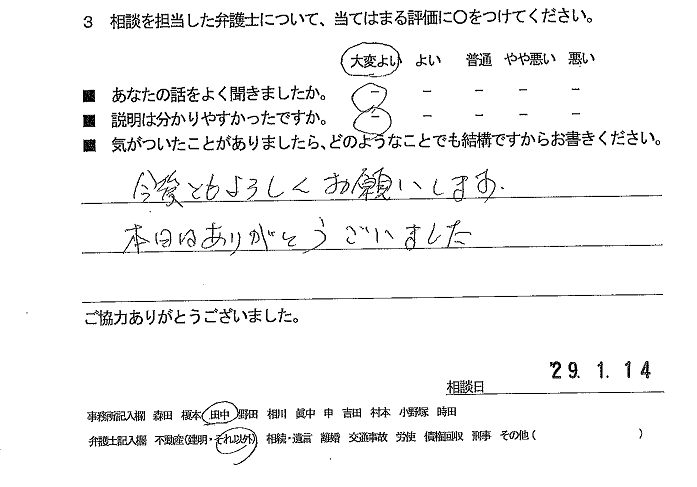 3 相談を担当した弁護士について、当てはまる評価に○をつけてください。
大変よい よい 普通 やや悪い 悪い
■ あなたの話をよく聞きましたか。 － － － － －
■ 説明は分かりやすかったですか。 － － － － －
■ 気がついたことがありましたら、どのようなことでも結構ですからお書きください。
今後ともよろしくお願いします.
本日はありがとうございました
ご協力ありがとうございました。
相談日 '29. 1. 14
事務所記入欄 森田 榎本 田中 野田 相川 眞中 申 吉田 村本 小野塚 時田
弁護士記入欄 不動産(建明・それ以外) 相続・遺言 離婚 交通事故 労使 債権回収 刑事 その他( )